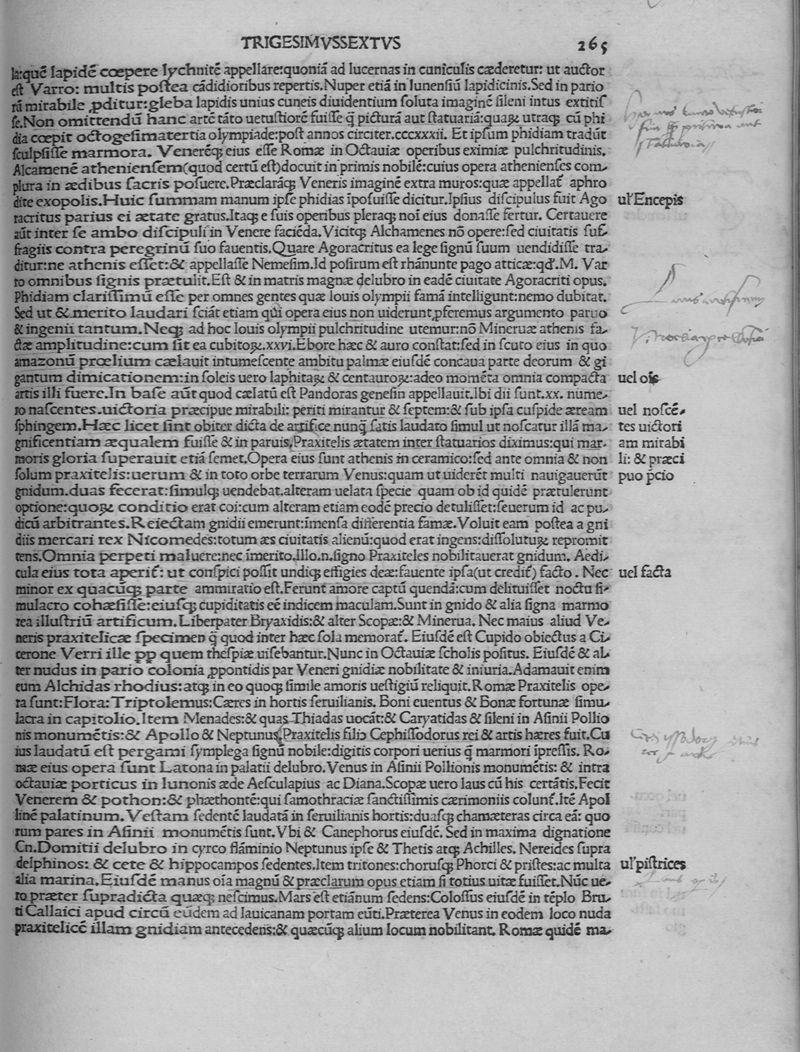 TRIGESIMVSSEXTVS 265
la:quē lapidē cœpere lychnitē appellare:quoniā ad lucernas in cuniculis cæderetur: ut auctor
est Varro: multis postea cādidioribus repertis.Nuper etiā in lunensiū lapidicinis.Sed in pario
rū mirabile ꝓditur:gleba lapidis unius cuneis diuidentium soluta imaginē sileni intus extitis
se.Non omittendū hanc artē tāto uetustiorē fuisse q̄ picturā aut statuariā:quaꝝ utraqꝫ cū phi
dia cœpit octogesimatertia olympiade:post annos circiter.cccxxxii. Et ipsum phidiam tradūt
sculpsisse marmora. Venerēqꝫ eius esse Romæ in Octauiæ operibus eximiæ pulchritudinis.
Alcamenē atheniensem(quod certū est)docuit in primis nobilē:cuius opera athenienses com-
plura in ædibus sacris posuere.Præclarāqꝫ Veneris imaginē extra muros:quæ appellat᷑ aphro
dite exopolis.Huic summam manum ipse phidias īposuisse dicitur.Ipsius discipulus fuit Ago ul'Encepis
racritus parius ei ætate gratus.Itaqꝫ e suis operibus pleraqꝫ noī eius donasse fertur. Certauere
aūt inter se ambo discipuli in Venere faciēda.Vicitqꝫ Alchamenes nō opere:sed ciuitatis suf-
fragiis contra peregrinū suo fauentis.Quare Agoracritus ea lege signū suum uendidisse tra-
ditur:ne athenis esset:& appellasse Nemesim.Id positum est rhānunte pago atticæ:qd'.M. Var
ro omnibus signis prætulit.Est & in matris magnæ delubro in eadē ciuitate Agoracriti opus.
Phidiam clarissimū esse per omnes gentes quæ Iouis olympii famā intelligunt:nemo dubitat.
Sed ut & merito laudari sciāt etiam qui opera eius non uiderunt ꝓferemus argumento paruo
& ingenii tantum.Neqꝫ ad hoc Iouis olympii pulchritudine utemur:nō Mineruæ athenis fa-
ctæ amplitudine:cum sit ea cubitoꝝ.xxvi.Ebore hæc & auro constat:sed in scuto eius in quo
amazonū prœlium cælauit intumescente ambitu palmæ eiusdē concaua parte deorum & gi
gantum dimicationem:in soleis uero laphitaꝝ & centauroꝝ:adeo momēta omnia compacta uel ois
artis illi fuere.In base aūt quod cælatū est Pandoras genesin appellauit.Ibi dii sunt.xx. nume-
ro nascentes.uictoria præcipue mirabili: periti mirantur & septem:& sub ipsa cuspide æream uel noscē-
sphingem.Hæc licet sint obiter dicta de artifice nunq̄ satis laudato simul ut noscatur illā ma- tes uictori
gnificentiam æqualem fuisse & in paruis.Praxitelis ætatem inter statuarios diximus:qui mar- am mirabi
moris gloria superauit etiā semet.Opera eius sunt athenis in ceramico:sed ante omnia & non li: & præci
solum praxitelis:uerum & in toto orbe terrarum Venus:quam ut uiderēt multi nauigauerūt puo p̄cio
gnidum.duas fecerat:simulqꝫ uendebat.alteram uelata specie quam ob id quidē prætulerunt
optione:quoꝝ conditio erat coi:cum alteram etiam eodē precio detulisset:seuerum id ac pu-
dicū arbitrantes.Reiectam gnidii emerunt:īmensa differentia famæ.Voluit eam postea a gni
diis mercari rex Nicomedes:totum æs ciuitatis alienū:quod erat ingens:dissoluturꝫ repromit
tens.Omnia perpeti maluere:nec īmerito.Illo.n.signo Praxiteles nobilitauerat gnidum. Aedi-
cula eius tota aperit᷑: ut conspici possit undiqꝫ effigies deæ:fauente ipsa(ut credit᷑) facto . Nec uel facta
minor ex quacūqꝫ parte ammiratio est.Ferunt amore captū quendā:cum delituisset noctu si-
mulacro cohæsisse:eiusqꝫ cupiditatis eē indicem maculam.Sunt in gnido & alia signa marmo
rea illustriū artificum.Liberpater Bryaxidis:& alter Scopæ:& Minerua. Nec maius aliud Ve-
neris praxitelicæ specimen q̄ quod inter hæc sola memorat᷑. Eiusdē est Cupido obiectus a Ci-
cerone Verri ille pp quem thespiæ uisebantur.Nunc in Octauiæ scholis positus. Eiusdē & al-
ter nudus in pario colonia ꝓpontidis par Veneri gnidiæ nobilitate & iniuria.Adamauit enim
eum Alchidas rhodius:atqꝫ in eo quoqꝫ simile amoris uestigiū reliquit.Romæ Praxitelis ope-
ra sunt:Flora:Triptolemus:Cæres in hortis seruilianis. Boni euentus & Bonæ fortunæ simu-
lacra in capitolio.Item Menades:& quas Thiadas uocāt:& Caryatidas & sileni in Asinii Pollio
nis monumētis:& Apollo & Neptunus.Praxitelis filio Cephissodorus rei & artis hæres fuit.Cu
ius laudatū est pergami symplega signū nobile:digitis corpori uerius q̄ marmori īpressis. Ro-
mæ eius opera sunt Latona in palatii delubro.Venus in Asinii Pollionis monumētis: & intra
octauiæ porticus in Iunonis æde Aesculapius ac Diana.Scopæ uero laus cū his certātis.Fecit
Venerem & pothon:& phæthontē:qui samothraciæ sanctissimis cærimoniis colunt᷑.Itē Apol
linē palatinum.Vestam sedentē laudatā in seruilianis hortis:duasqꝫ chamæteras circa eā: quo
rum pares in Asinii monumētis sunt.Vbi & Canephorus eiusdē. Sed in maxima dignatione
Cn.Domitii delubro in cyrco flāminio Neptunus ipse & Thetis atqꝫ Achilles. Nereides supra
delphinos: & cete & hippocampos sedentes.Item tritones:chorusqꝫ Phorci & pristes:ac multa ul'pistrices
alia marina.Eiusdē manus oīa magnū & præclarum opus etiam si totius uitæ fuisset.Nūc ue-
ro præter supradicta quæqꝫ nescimus.Mars est etiānum sedens:Colossus eiusdē in tēplo Bru-
ti Callaici apud circū eudem ad lauicanam portam eūti.Præterea Venus in eodem loco nuda
praxitelicē illam gnidiam antecedens:& quæcūqꝫ alium locum nobilitant. Romæ quidē ma-